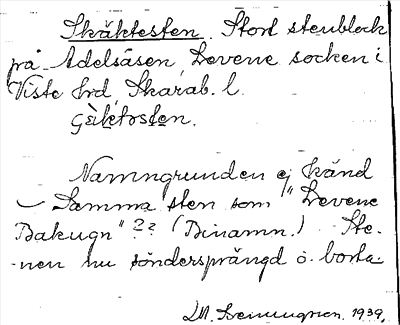 Skäktesten. Stort stenblock
på Adelsåsen Levene socken i
Viste hrd, Skarab. l.
Namngrunden ej känd
– Samma sten som "Levene
Bakugn" ?? (Binamn.) Ste-
-nen nu söndersprängd o. borta.
1939.